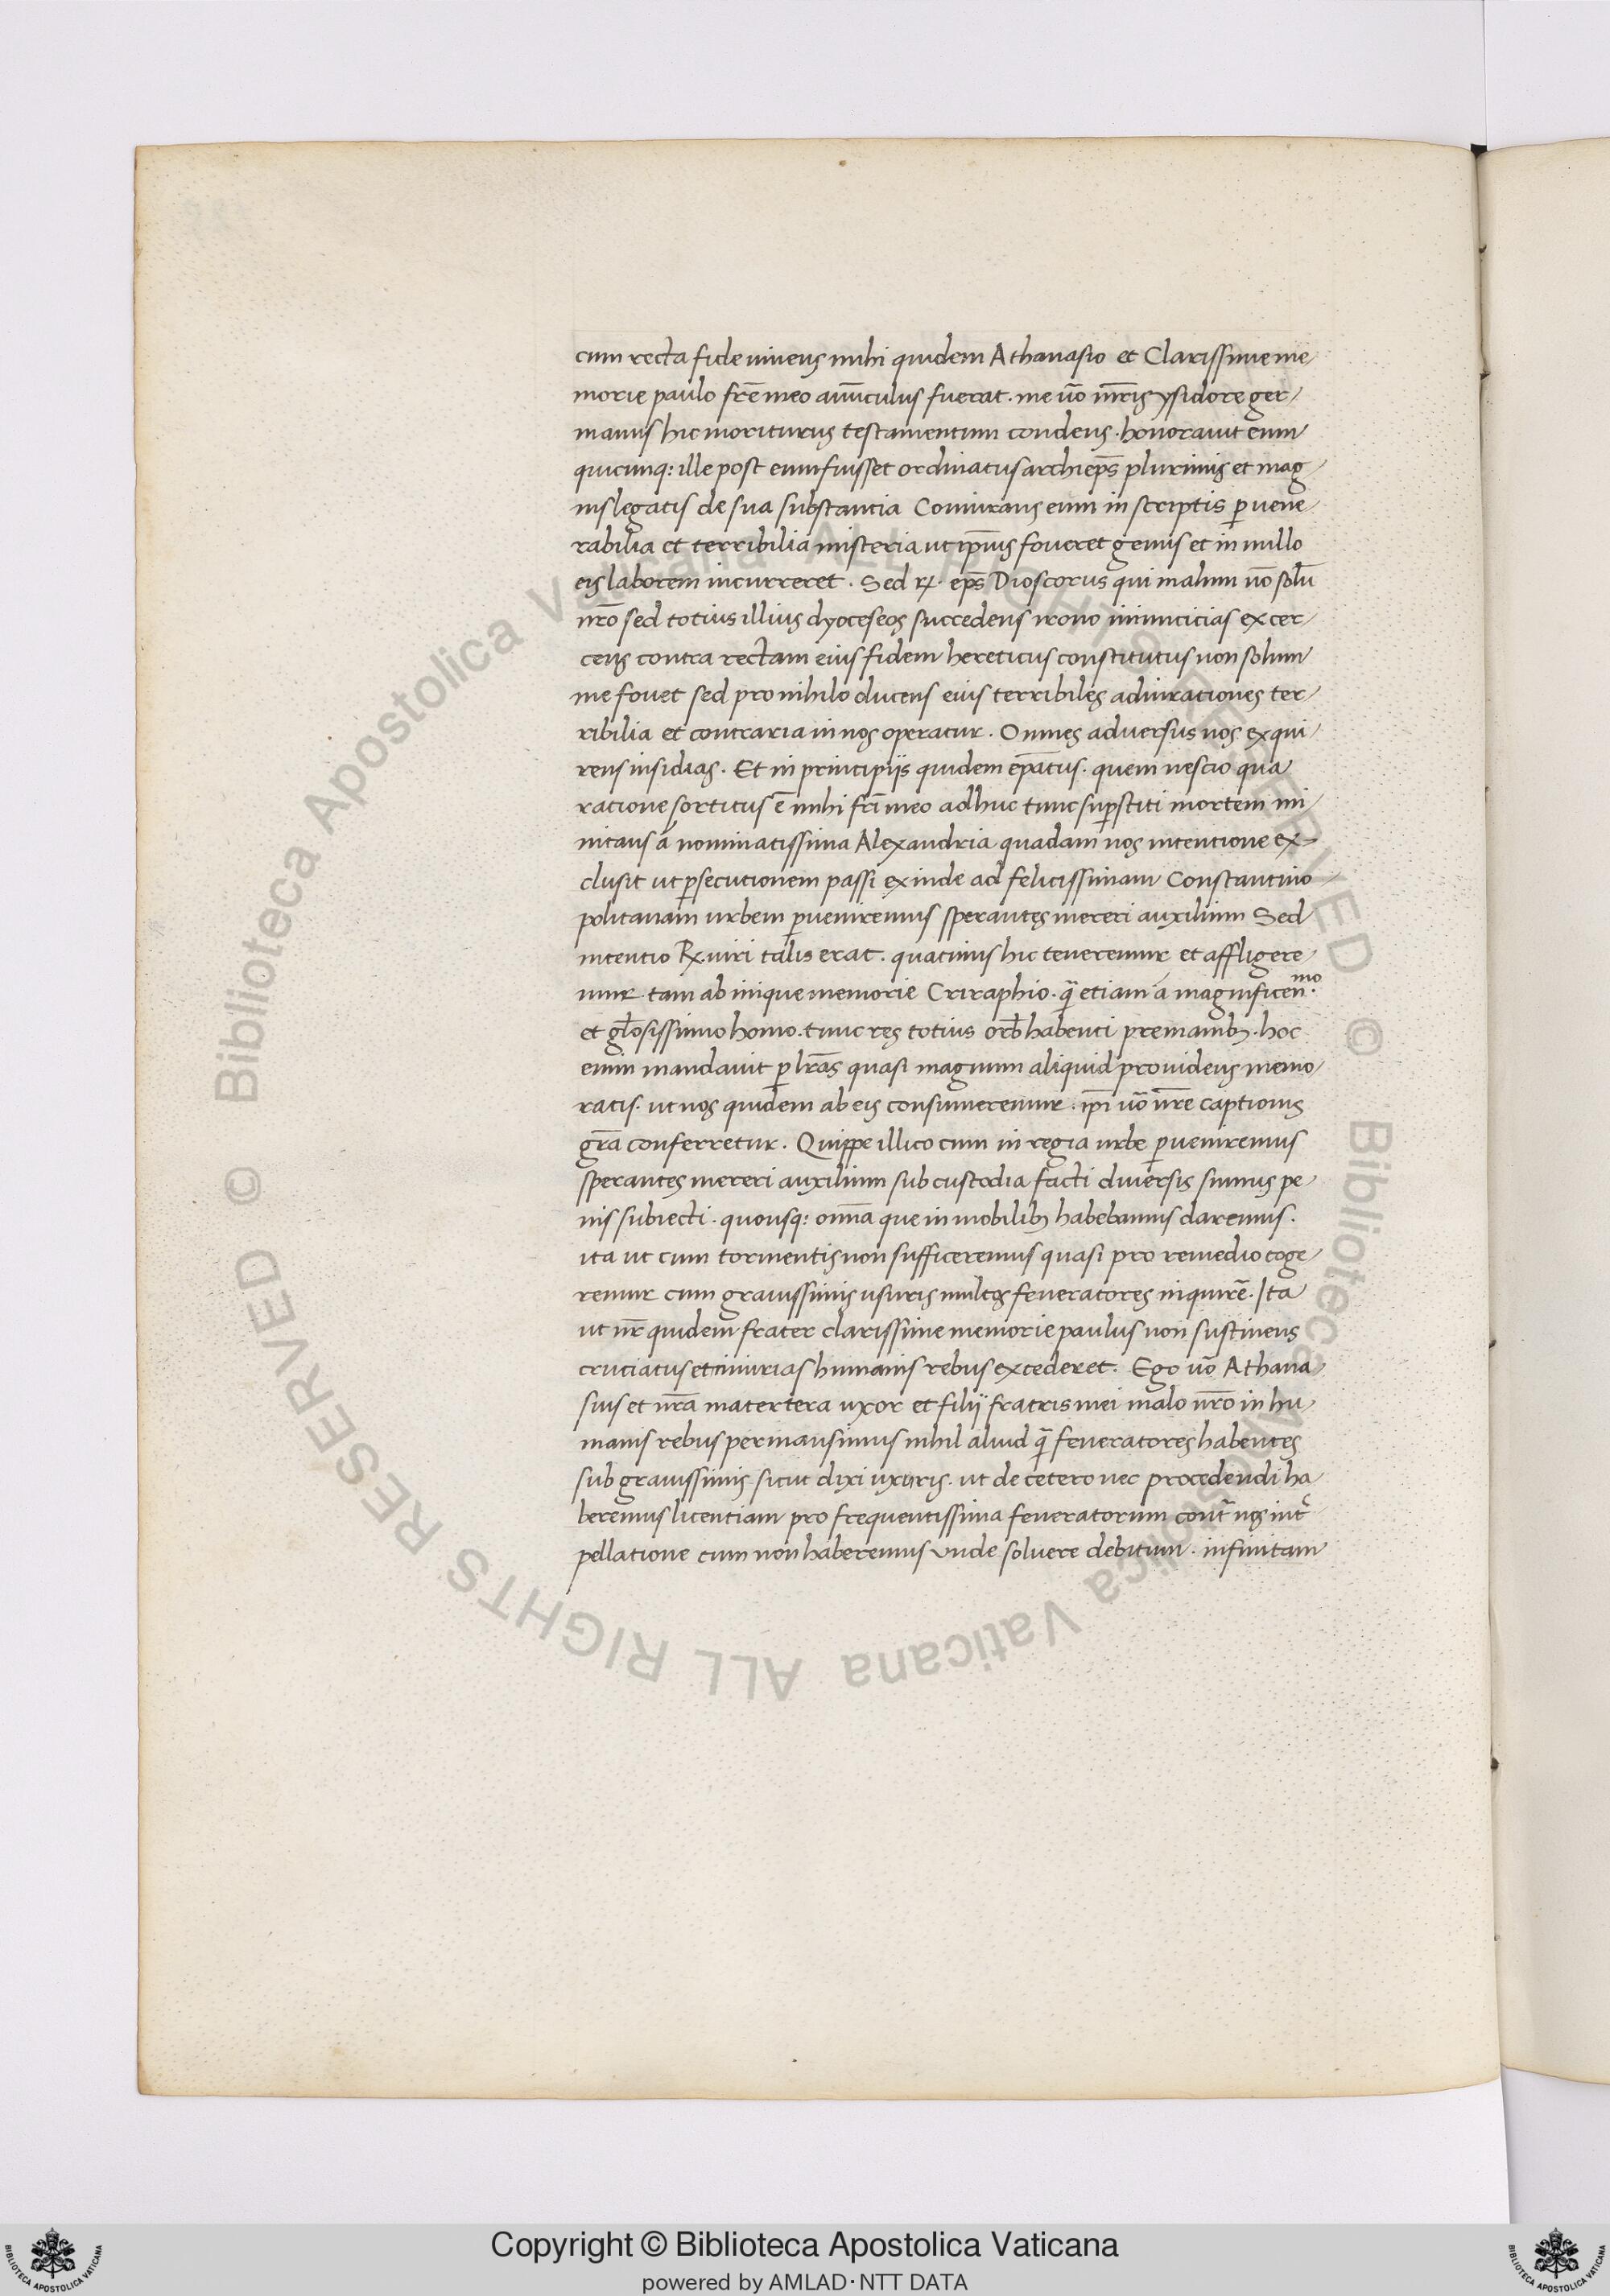 cum recta fide vivens mihi quidem Athanasio et Clarissime me
morie paulo frē meo avūculus fuerat. me ṽo mr̄is ysidore ger
manus hic moriturus testamentum condens. honoravit eum
quicunq: ille post eum fuisset ordinatus archiep̄s plurimis et mag
nis legatis de sua substantia Coniurans eum in scriptis p̱ vene
rabilia et terribilia misteria ut ip̄ius foveret genus et in nullo
eis laborem incurreret. Sed R. ep̄s Dioscorus qui malum nō solū
nr̄o sed totius illius dyoceseos succedens trono inimicicias excer
cens contra rectam eius fidem hereticus constitutus non solum
me fovet sed pro nihilo ducens eius terribiles adiurationes ter
ribilia et contraria in nos operatur. Omnes adversus nos exqui
rens insidias. Et in principijs quidem ep̄atus. quem nescio qua
ratione sortitus ē mihi fr̄i meo adhuc tunc sup̱stiti mortem mi
nitans á nominatissima Alexandria quadam nos intentione ex
clusit ut p̱secutionem passi exinde ad felicissimam Constantino
politanam urbem p̱veniremus sperantes mereri auxilium Sed
intentio R. viri talis erat. quatinus hic teneremur et affligere
mur. tam ab inique memorie Criraphio. q̄ etiam á magnificen.mo
et gl̄osissimo homo. tunc res totius orb̄ habenti premanib;. hoc
enim mandavit p̱ lr̄as quasi magnum aliquid providens memo
ratis. ut nos quidem ab eis consumeremur. ip̄i ṽo nr̄e captionis
gr̄a conferretur. Quippe illico cum in regia urbe p̱veniremus
sperantes mereri auxilium sub custodia facti diversis sumus pe
nis subiecti. quousq: om̄a que in mobilib; habebamus daremus.
ita ut cum tormentis non sufficeremus quasi pro remedio coge
remur cum gravissimis usuris multos feneratores inquirē. Ita
ut nr̄ quidem frater clarissime memorie paulus non sustinens
cruciatus et iniurias humanis rebus excederet. Ego ṽo Athana
sius et nr̄a matertera uxor et filij fratris mei malo nr̄o in hu
manis rebus permansimus nihil aliud q̄ feneratores habentes
sub gravissimis sicut dixi uxuris. ut de cetero nec procedendi ha
beremus licentiam pro frequentissima feneratorum cont̄ nos int̄
pellatione cum non haberemus unde solvere debitum. infinitam
Copyright © Biblioteca Apostolica Vaticana
powered by AMLAD·NTT DATA